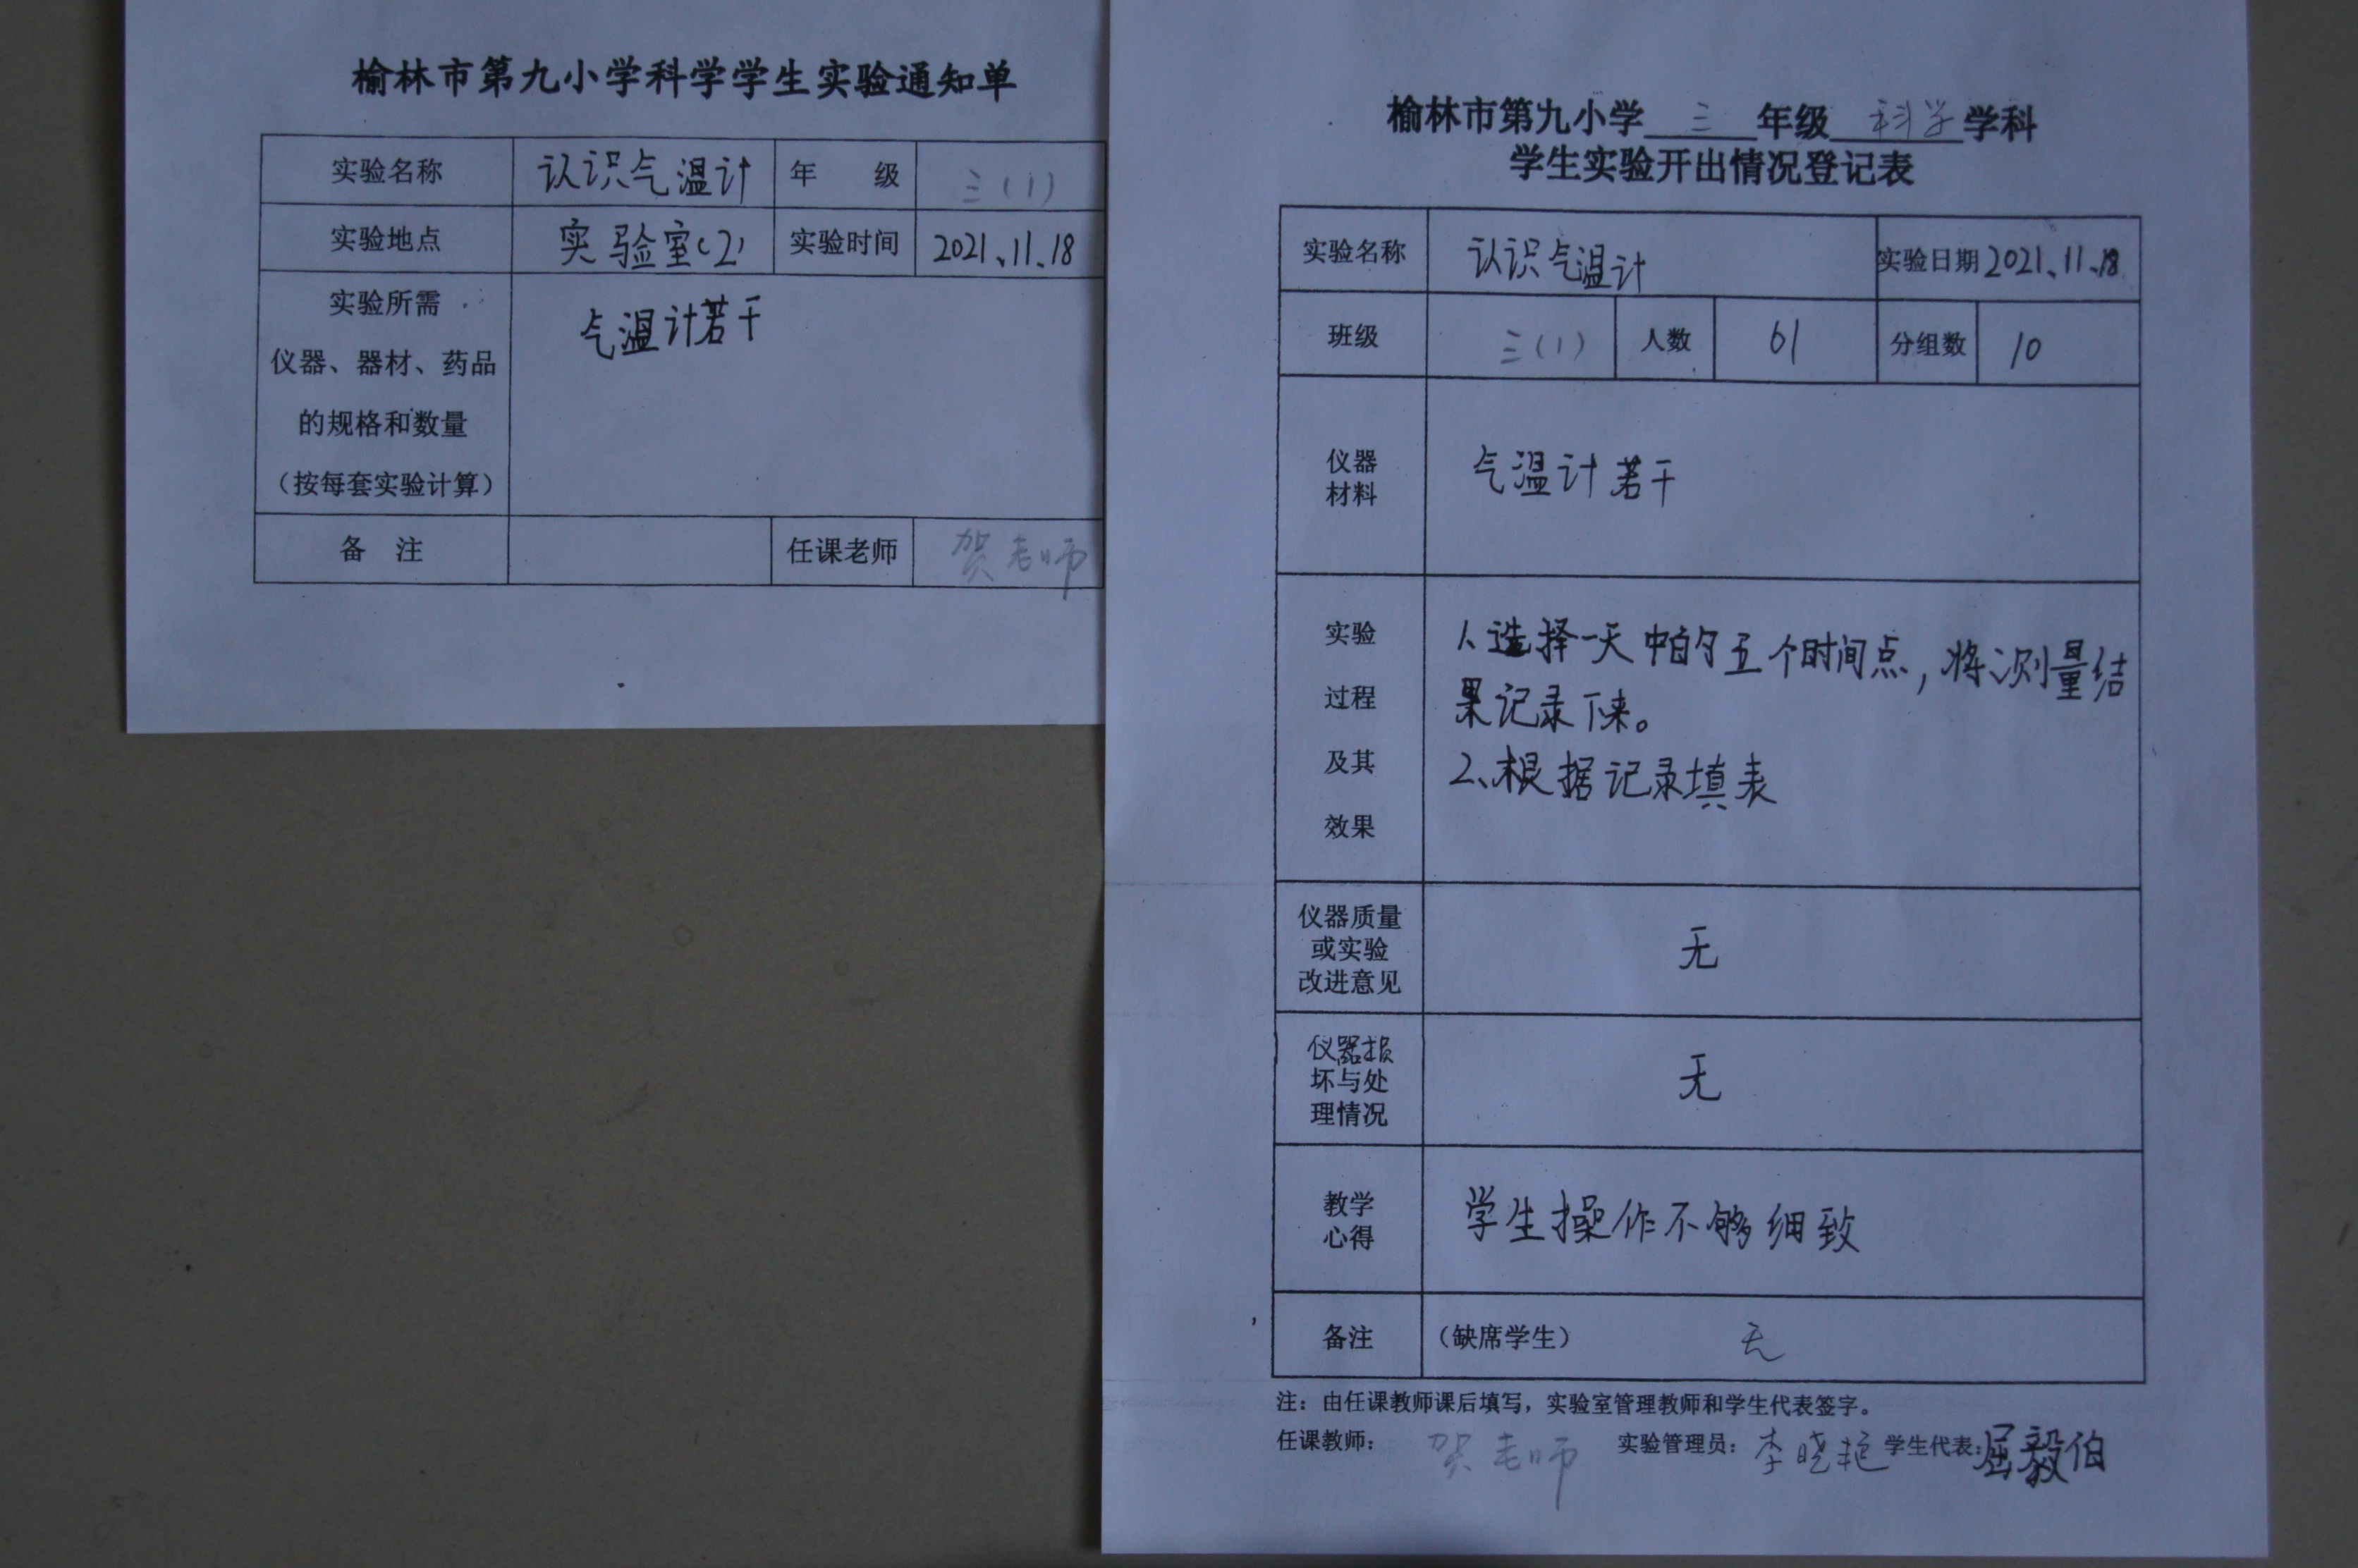 榆林市第九小学科学学生实验通知单
实验名称 认识气温计 年 级 三(1)
实验地点 实验室(2) 实验时间 2021、11、18
实验所需
仪器、器材、药品
的规格和数量
（按每套实验计算）
气温计若干
备 注 任课老师 贺老师
榆林市第九小学 三 年级 科学 学科
学生实验开出情况登记表
实验名称 认识气温计 实验日期 2021、11、18
班级 三(1) 人数 61 分组数 10
仪器
材料
气温计若干
实验
过程
及其
效果
1、选择一天中的五个时间点，将测量结
果记录下来。
2、根据记录填表
仪器质量
或实验
改进意见
无
仪器损
坏与处
理情况
无
教学
心得
学生操作不够细致
备注 （缺席学生） 无
注：由任课教师课后填写，实验室管理教师和学生代表签字。
任课教师： 贺老师 实验管理员：李晓艳 学生代表：屈毅伯